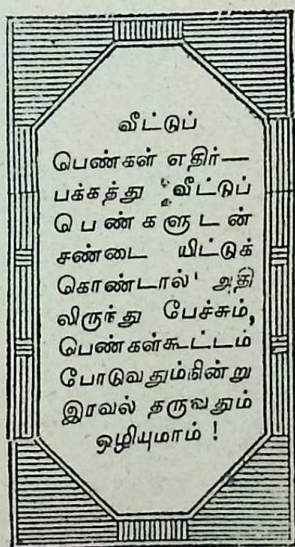 வீட்டுப்
பெண்கள் எதிர்—
பக்கத்து வீட்டுப்
பெண்களுடன்
சண்டை யிட்டுக்
கொண்டால் அதி
லிருந்து பேச்சும்,
பெண்கள்கூட்டம்
போடுவதும்நின்று
இரவல் தருவதும்
ஒழியுமாம் !